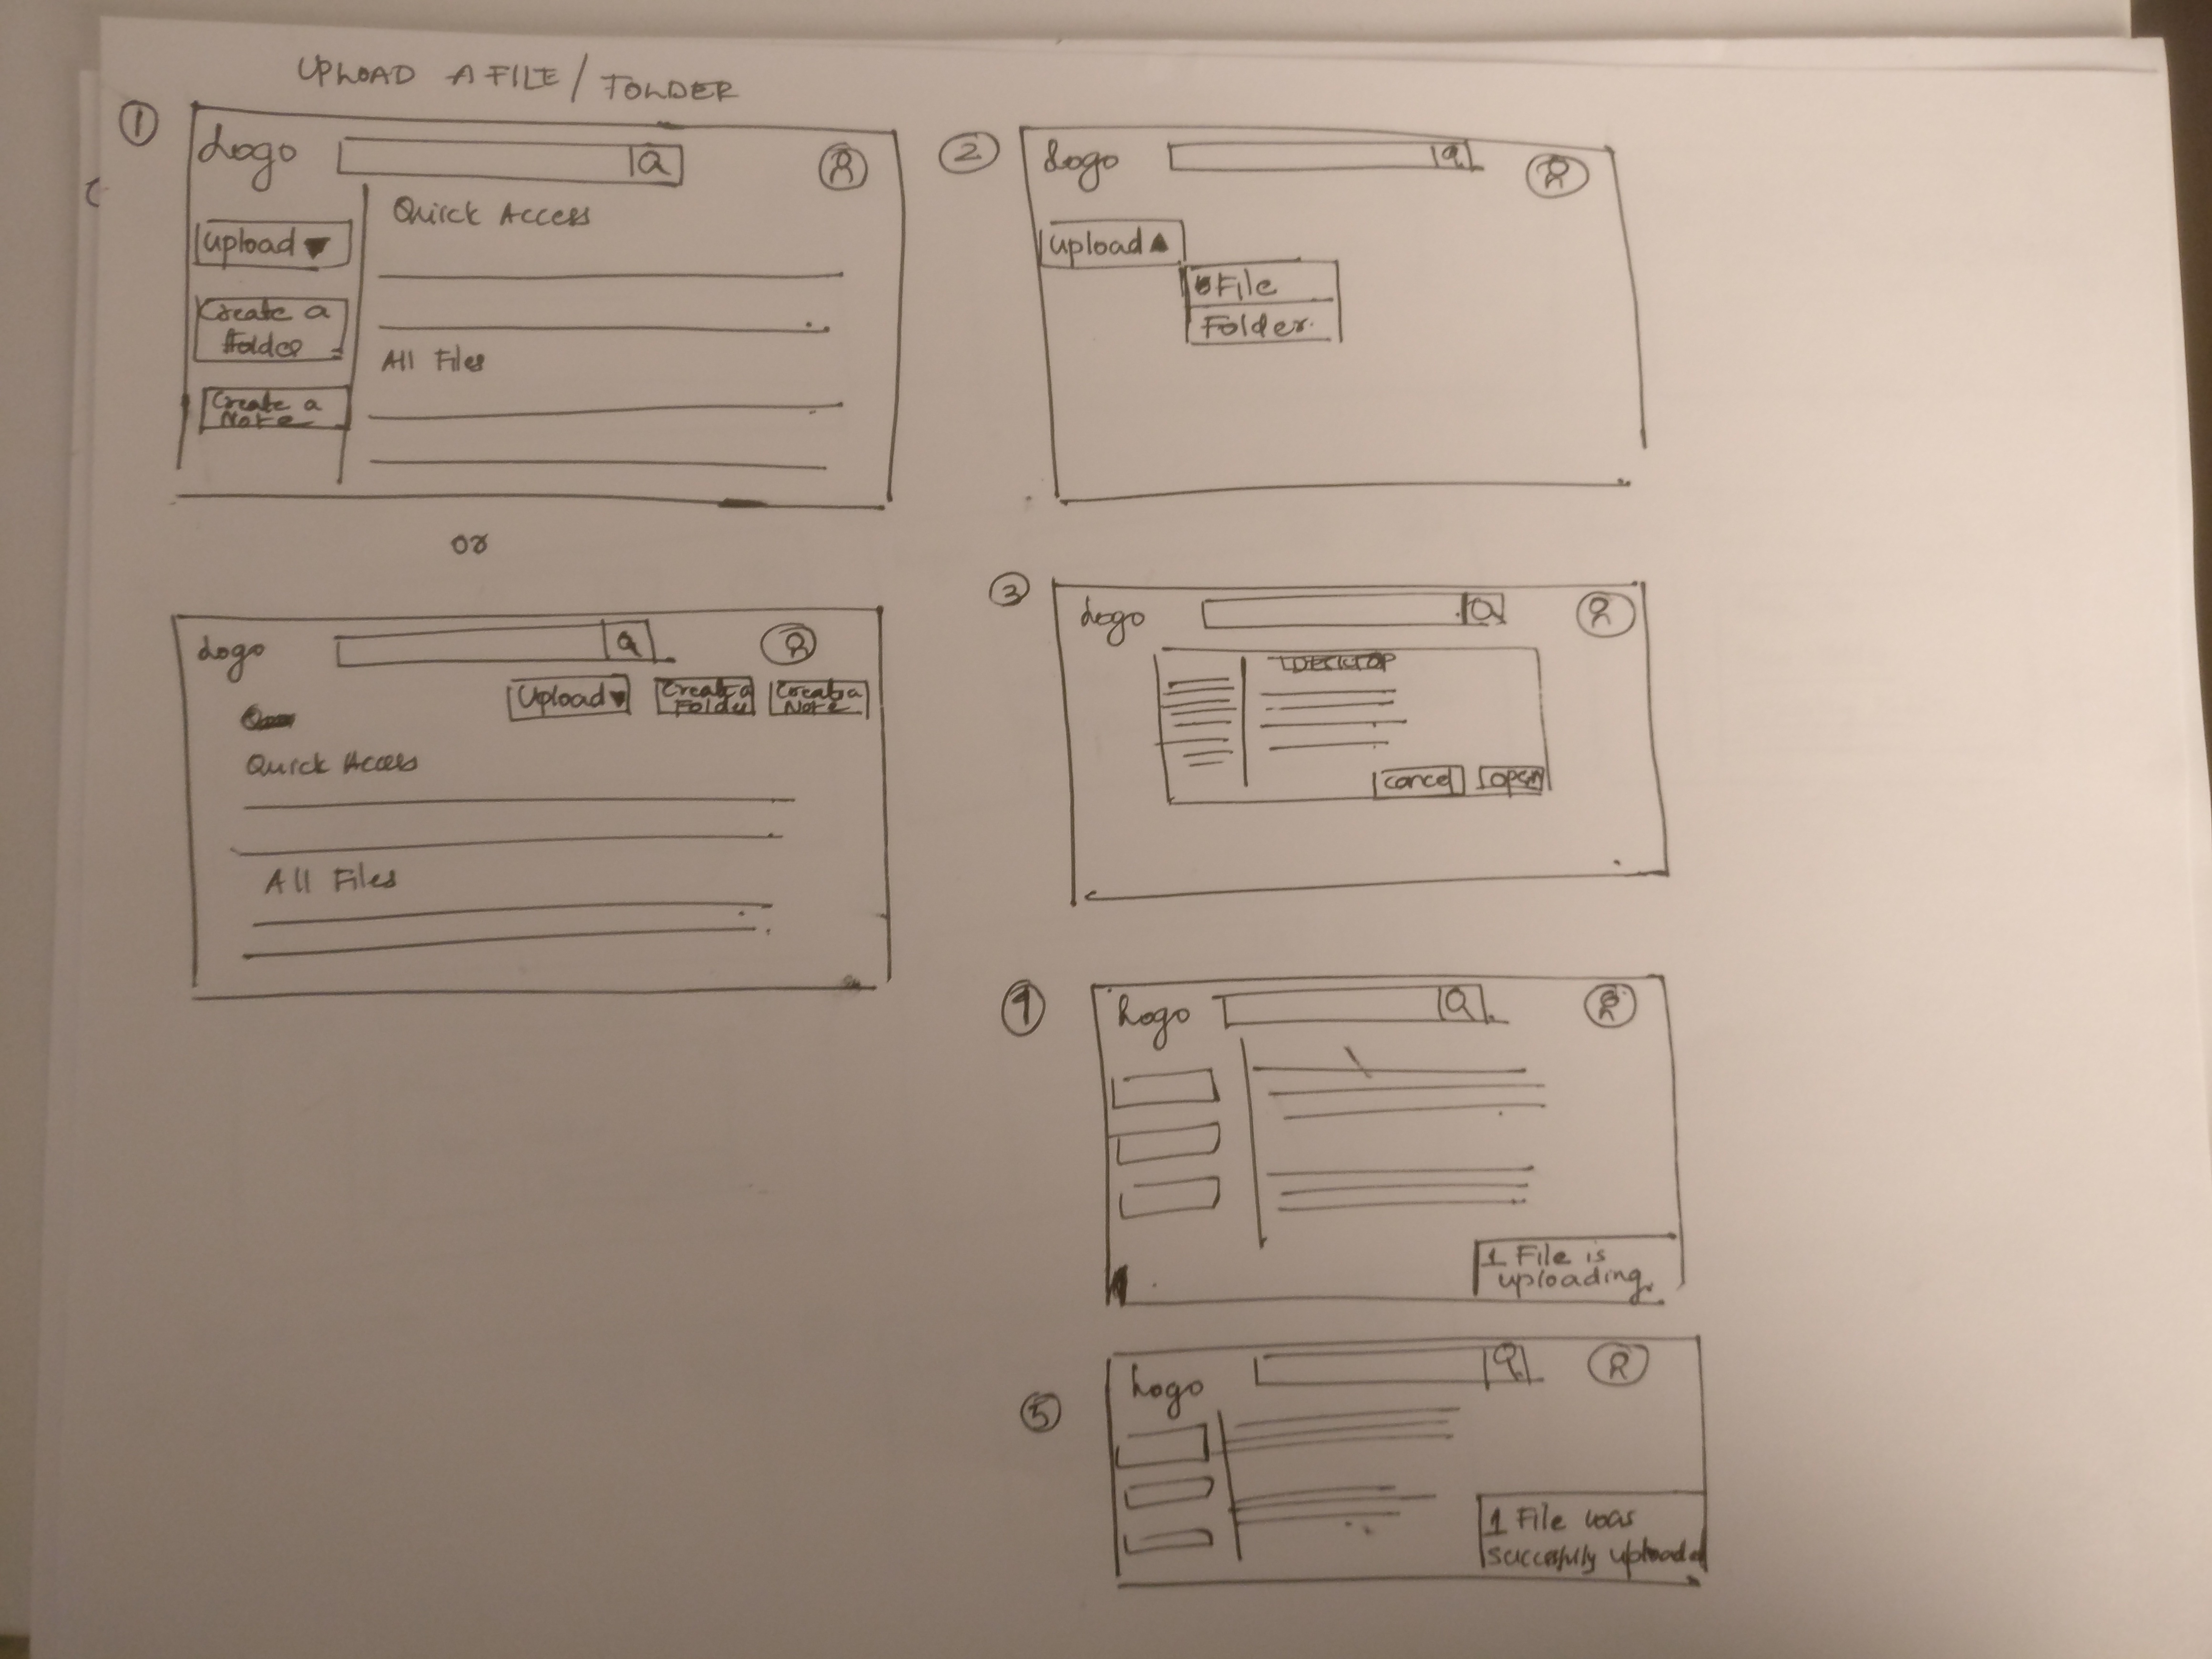 UPLOAD A FILE / FOLDER
1
Logo
Quick Access
Upload
Create a
Folder
All Files
Create a
Note
or
Logo
Upload
Create a
Folder
Create a
Note
Quick Access
All Files
2
Logo
Upload
File
Folder
3
Logo
DESKTOP
Cancel
Open
4
Logo
1 File is
uploading
5
Logo
1 File was
succesfully uploaded